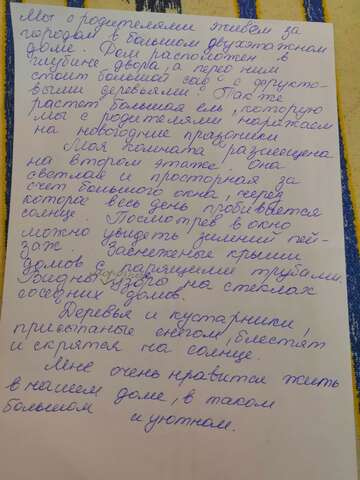 Мы с родителями живём за
городом в большом двухэтажном
доме. Дом расположен в
глубине двора, а перед ним
стоит большой сад с фрукто-
выми деревьями. Также
растёт большая ель, которую
мы с родителями наряжаем
на новогодние праздники
Моя комната размещена
на втором этаже. Она
светлая и просторная за
счёт большого окна, через
которое весь день пробивается
солнце. Посмотрев в окно
можно увидеть зимний пей-
заж. Заснеженые крыши
домов с парящими трубами.
Видны узоры на стеклах
соседних домов.
Деревья и кустарники,
присыпаные снегом, блестят
и скрятся на солнце.
Мне очень нравится жить
в нашем доме, в таком
большом и уютном.